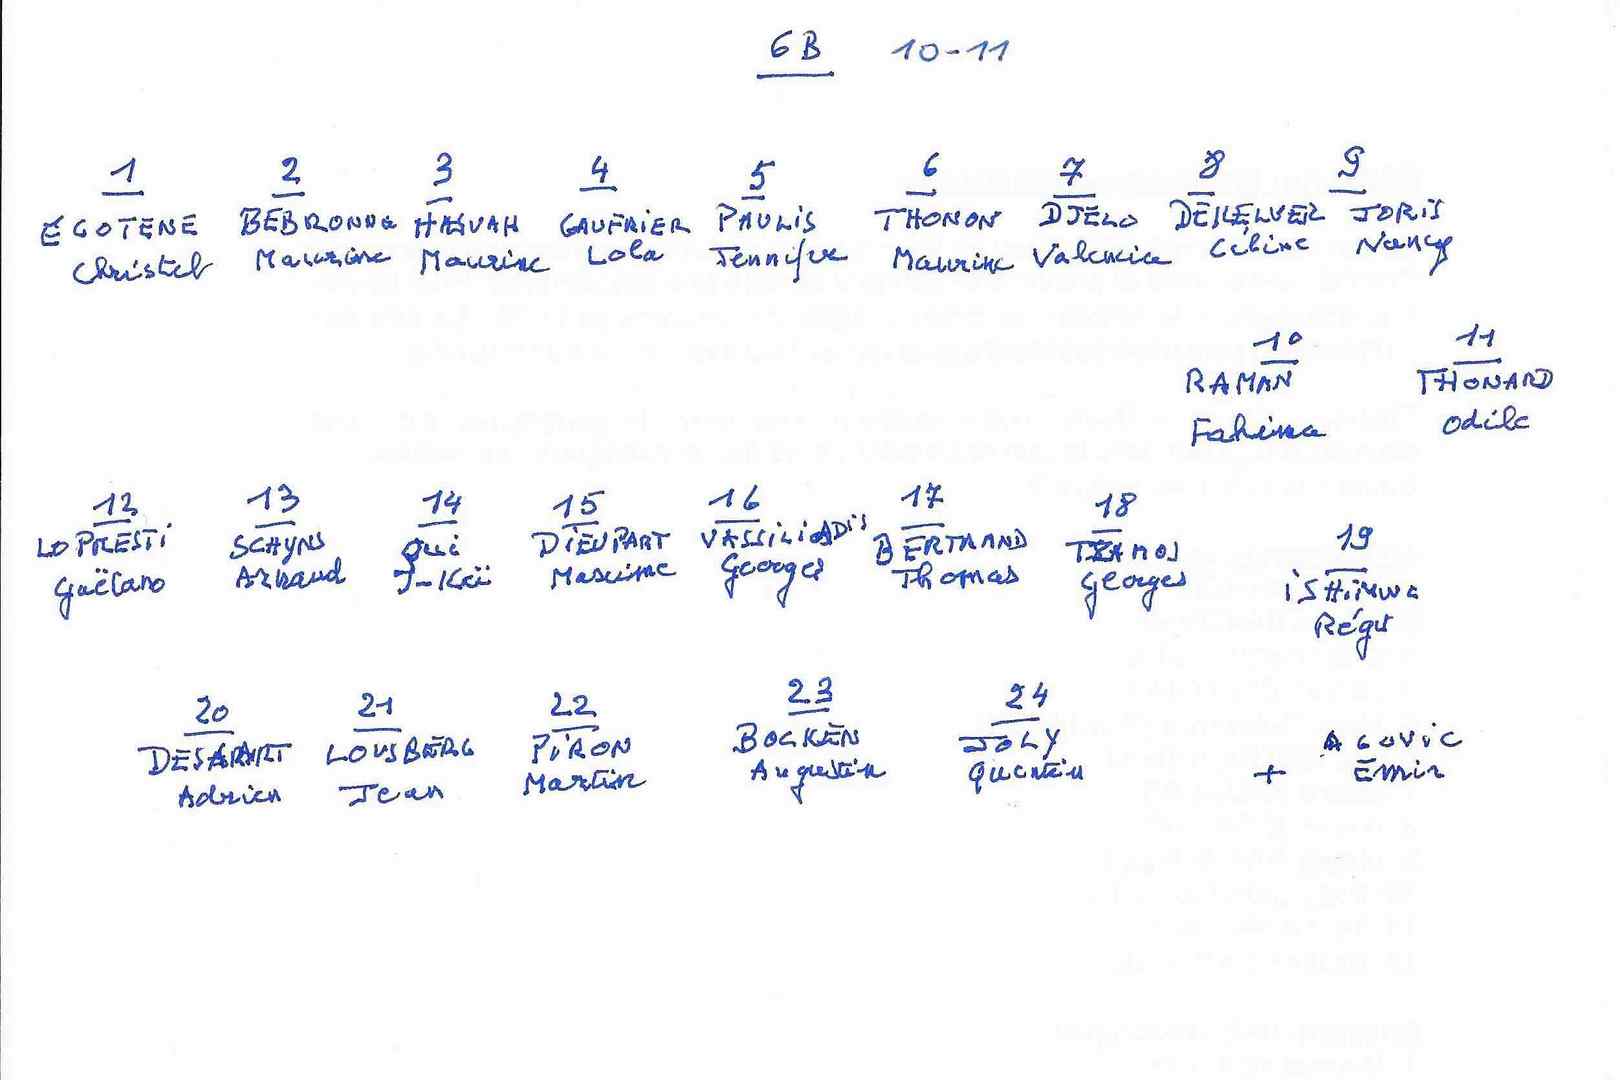 6B 10-11
1 2 3 4 5 6 7 8 9
ÉGOTENE BEBRONNE HASVAH GAUFRIER PAULIS THONON DJELO DEKELVER JORIS
Christel Maurine Maurine Lola Jennifer Maurine Valencia Céline Nancy
10 11
RAMAN THONARD
Fahima Odile
12 13 14 15 16 17 18 19
LO PRESTI SCHYNS QUI DIEUPART VASSILIADIS BERTRAND TZAMOS ISHIMWE
Gaëtano Arnaud J-Kaï Maxime Georges Thomas Georges Régis
20 21 22 23 24
DESSART LOUSBERG PIRON BOCKEN JOLY AGOVIC
Adrien Jean Martin Augustin Quentin + Emir